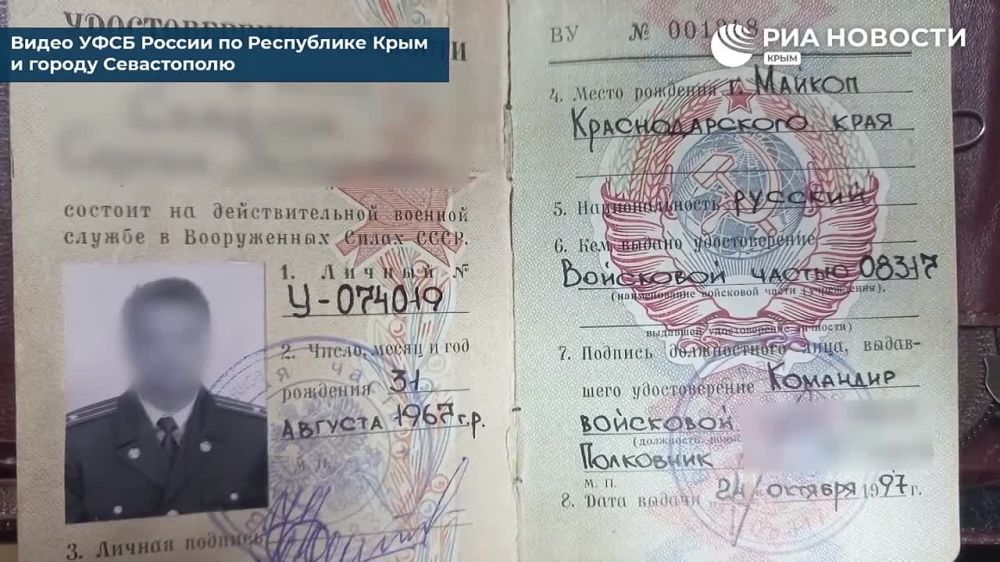 УДОСТОВЕРЕНИЕ
Видео УФСБ России по Республике Крым
и городу Севастополю
состоит на действительной военной
службе в Вооруженных Силах СССР.
1. Личный №
У-074019
2. Число, месяц и год
рождения 31
августа 1967 г.р.
3. Личная подпись
ВУ № 001
РИА НОВОСТИ
КРЫМ
4. Место рождения г. Майкоп
Краснодарского края
5. Национальность русский
6. Кем выдано удостоверение
Войсковой частью 08317
(наименование войсковой части (учреждения),
выдавшей удостоверение личности)
7. Подпись должностного лица, выдав-
шего удостоверение Командир
войсковой
(должность,
Полковник
м. п.
8. Дата выдачи 24 октября 1997 г.